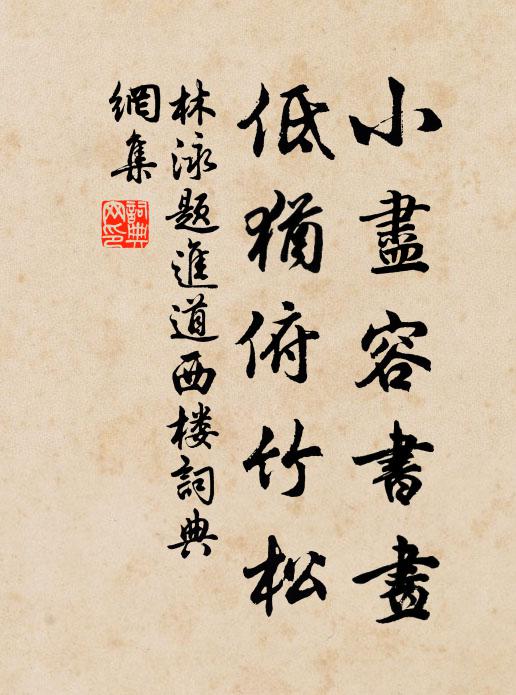 小盡容書畫
低猶俯竹松
林泳題進道西楼詞典
網集
詞典
网印